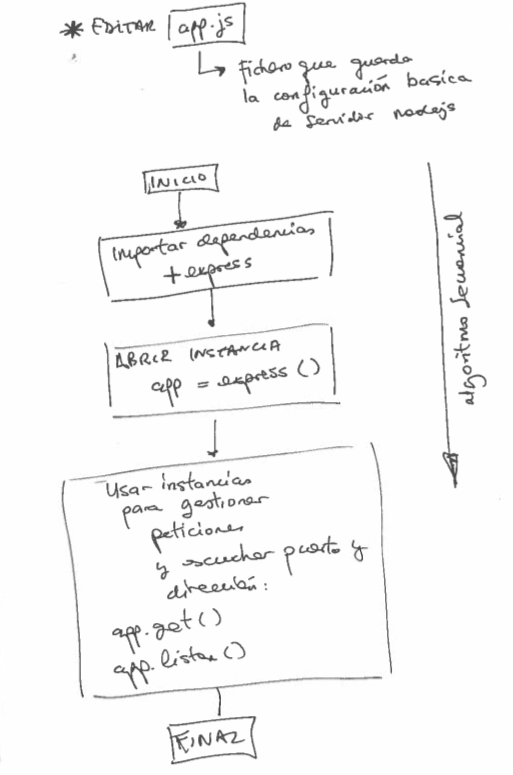 * EDITAR app.js
Fichero que guarda
la configuración basica
de servidor nodejs
INICIO
importar dependencias
+ express
ABRIR INSTANCIA
app = express ()
Usar instancias
para gestionar
peticiones
y escuchar puerto y
dirección:
app.get()
app.listen()
FINAL
algoritmo secuencial